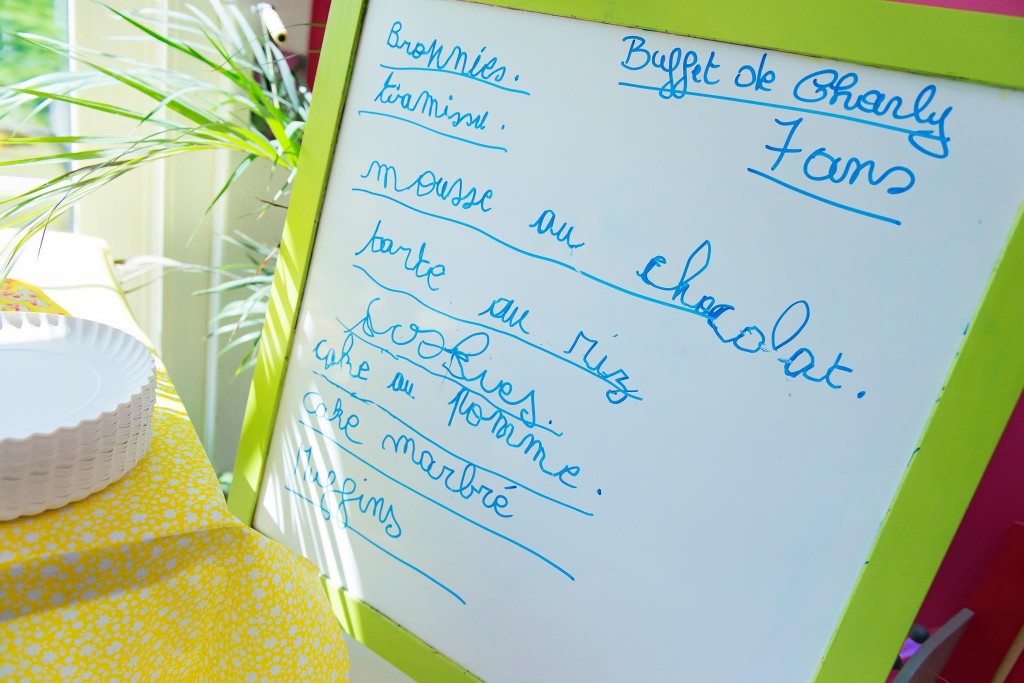 Buffet de Charly
7 ans
Brownies.
tiramissu.
mousse au chocolat.
tarte au riz
Cookies.
cake au pomme.
cake marbré
Muffins